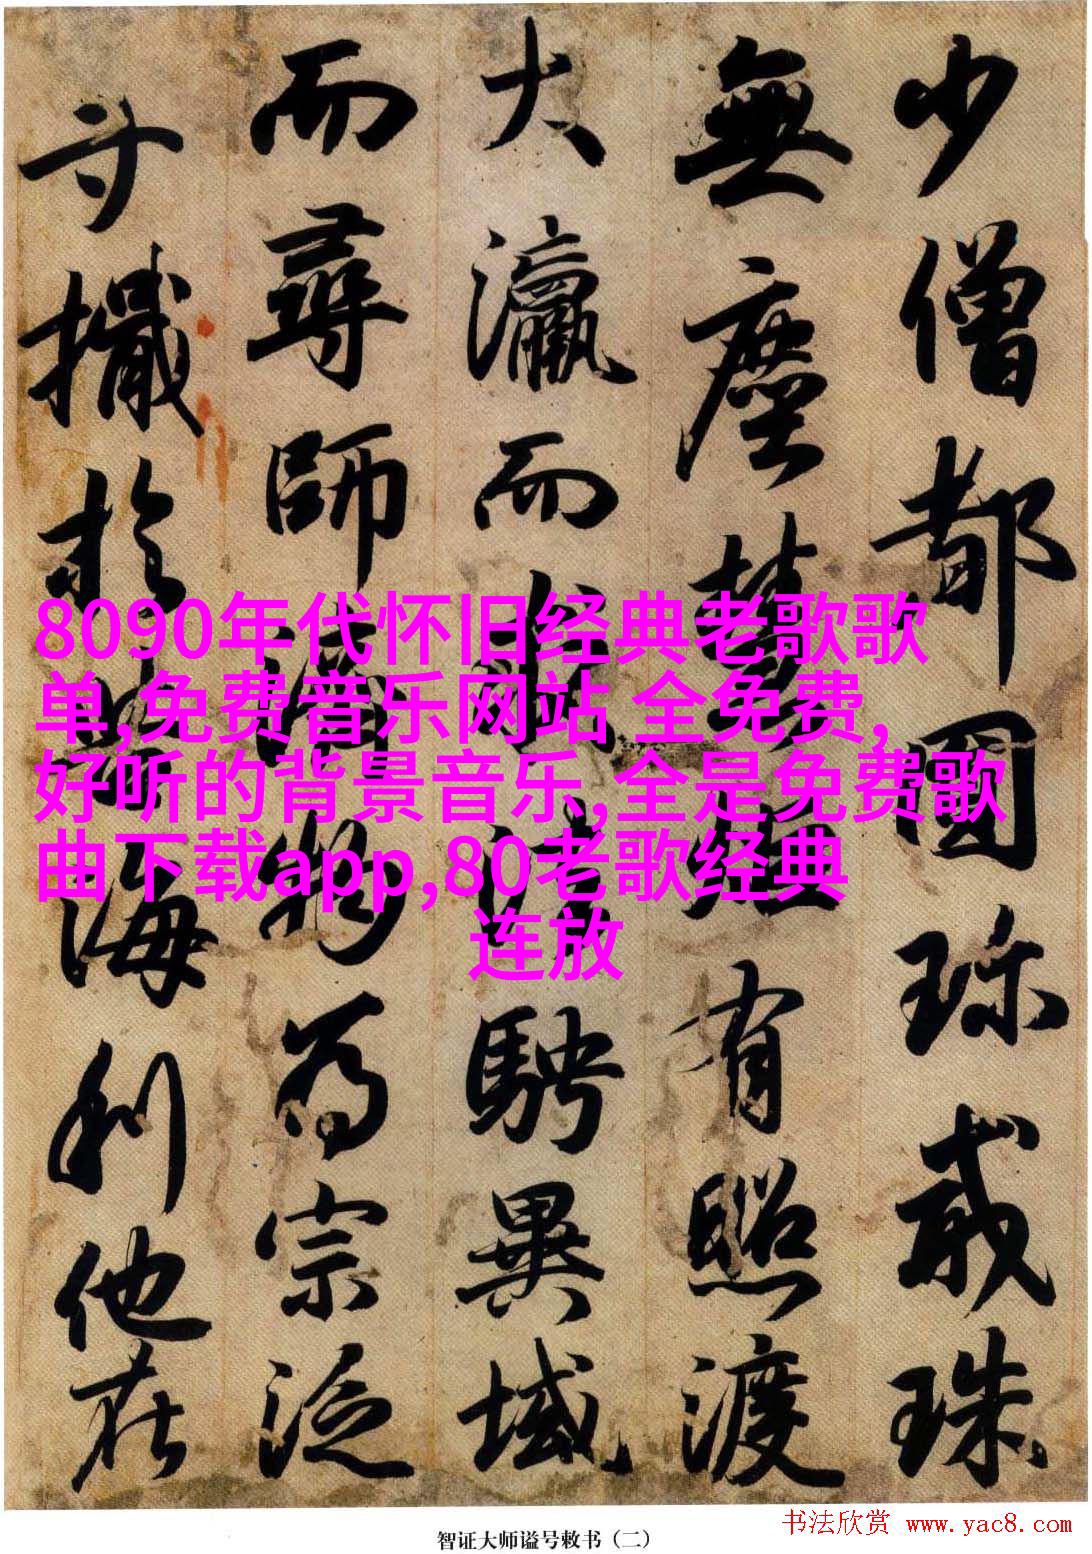 少僧都圓珍戒珠
無塵慧有照渡
大瀛而騁異域
而尋師濟物為宗泛
寸檝於海利他在
8090年代怀旧经典老歌歌
单,免费音乐网站 全免费,
好听的背景音乐,全是免费歌
曲下载app,80老歌经典
连放
智证大师谥号敕书（二）
书法欣赏 www.yac8.com